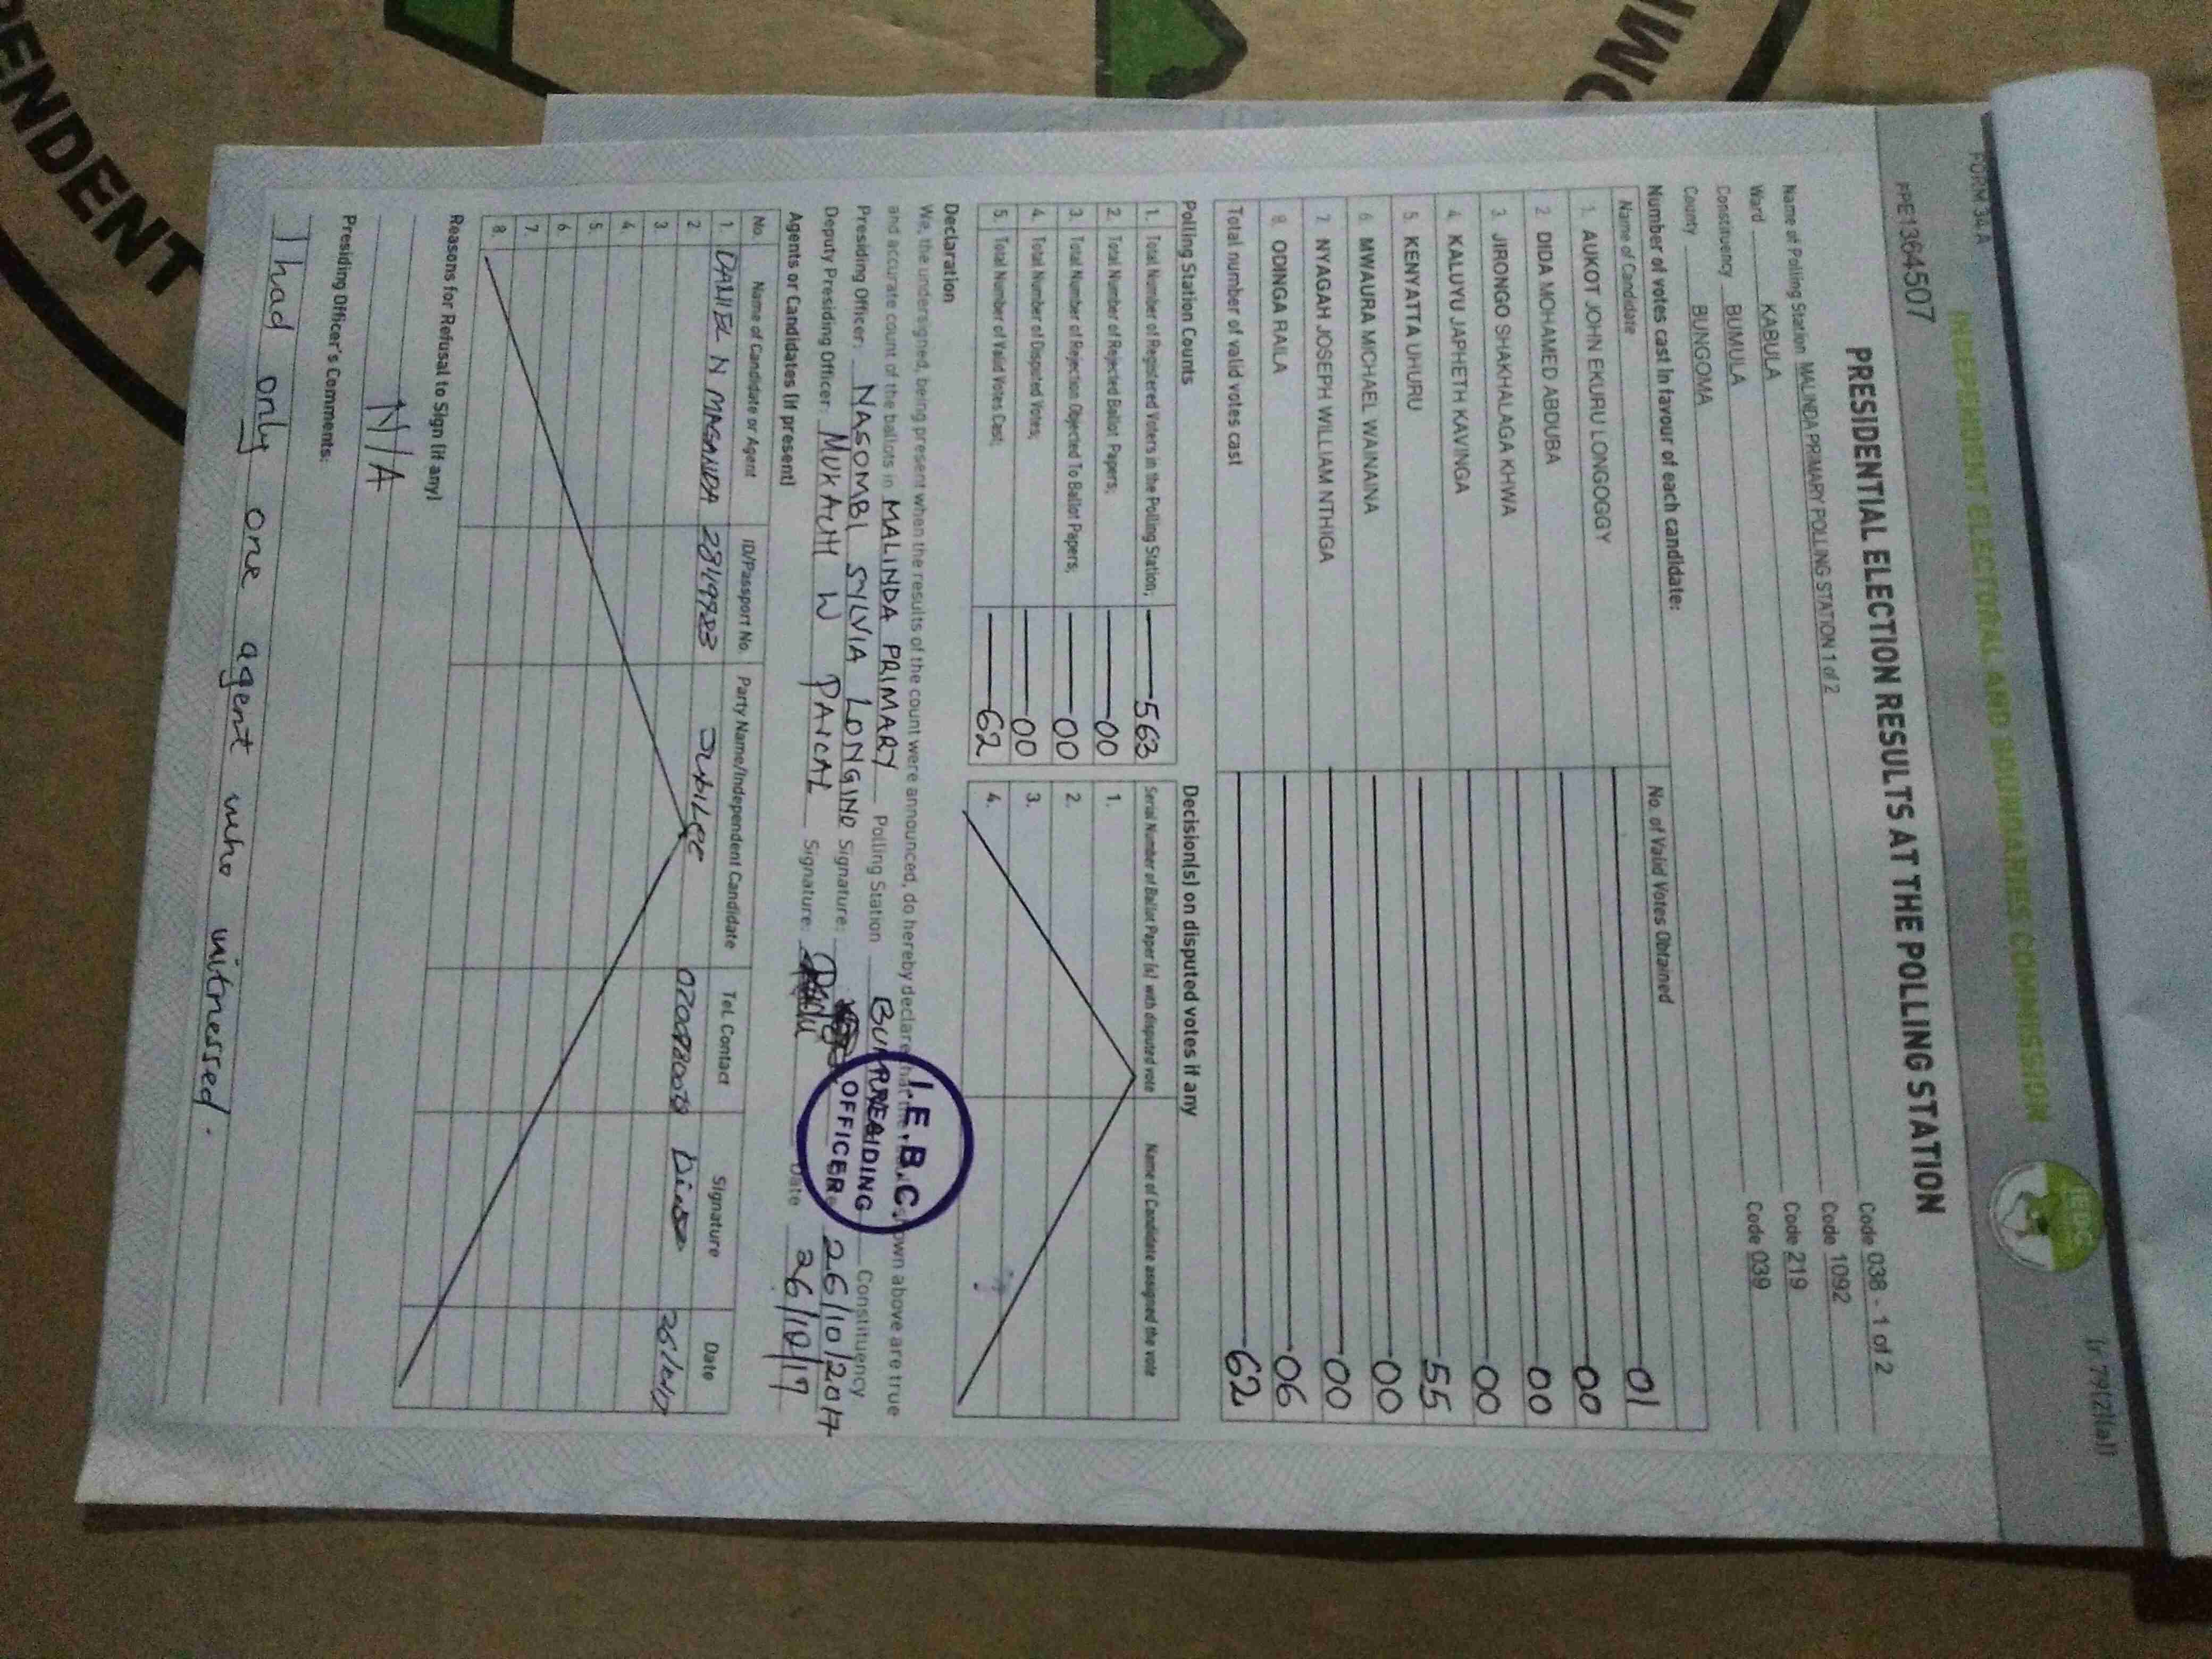 r 79(2)(a)
FORM 34 A
INDEPENDENT ELECTORAL AND BOUNDARIES COMMISSION
IEBC
PPE1364507
PRESIDENTIAL ELECTION RESULTS AT THE POLLING STATION
Name of Polling Station MALINDA PRIMARY POLLING STATION 1 of 2 Code 038 - 1 of 2
Ward KABULA Code 1092
Constituency BUMULA Code 219
County BUNGOMA Code 039
Number of votes cast in favour of each candidate:
Name of Candidate No. of Valid Votes Obtained
1. AUKOT JOHN EKURU LONGOGGY 01
2. DIDA MOHAMED ABDUBA 00
3. JIRONGO SHAKHALAGA KHWA 00
4. KALUYU JAPHETH KAVINGA 00
5. KENYATTA UHURU 55
6. MWAURA MICHAEL WAINAINA 00
7. NYAGAH JOSEPH WILLIAM NTHIGA 00
8. ODINGA RAILA 06
Total number of valid votes cast 62
Polling Station Counts
1. Total Number of Registered Voters in the Polling Station; 563
2. Total Number of Rejected Ballot Papers; 00
3. Total Number of Rejection Objected To Ballot Papers; 00
4. Total Number of Disputed Votes; 00
5. Total Number of Valid Votes Cast; 62
Decision(s) on disputed votes if any
Serial Number of Ballot Paper (s) with disputed vote Name of Candidate assigned the vote
1.
2.
3.
4.
Declaration
We, the undersigned, being present when the results of the count were announced, do hereby declare that the own above are true
and accurate count of the ballots in MALINDA PRIMARY Polling Station Constituency
Presiding Officer: NASOMBI SYLVIA LONGINO Signature: 26/10/2017
Deputy Presiding Officer: W Signature: Date 26/10/17
I.E.B.C.
PRESIDING
OFFICER
Agents or Candidates (if present)
No. Name of Candidate or Agent ID/Passport No. Party Name/Independent Candidate Tel. Contact Signature Date
1. DANIEL N MAGANDA Jubilee
2
3
4.
5.
6.
7.
8.
Reasons for Refusal to Sign (if any)
N/A
Presiding Officer's Comments:
I had only one agent who witnessed.
ENDENT